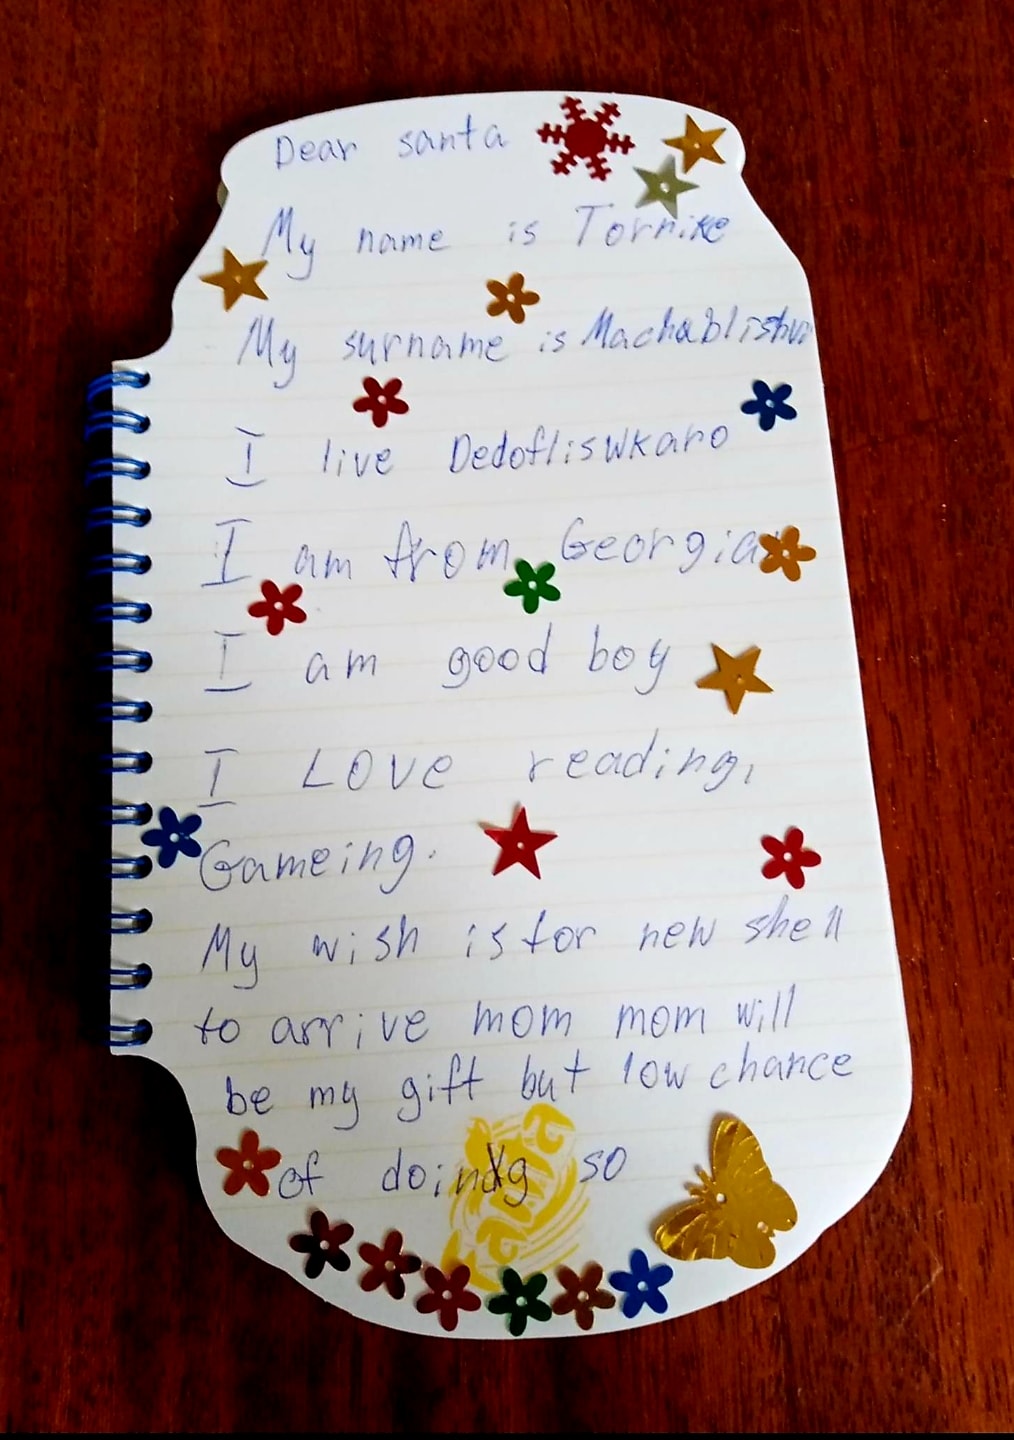 Dear santa
My name is Tornike
My surname is Machablishvi
I live Dedofliswkaro
I am from Georgia
I am good boy
I LOVE reading,
Gameing.
My wish is for new shell
to arrive mom mom will
be my gift but low chance
of doing so